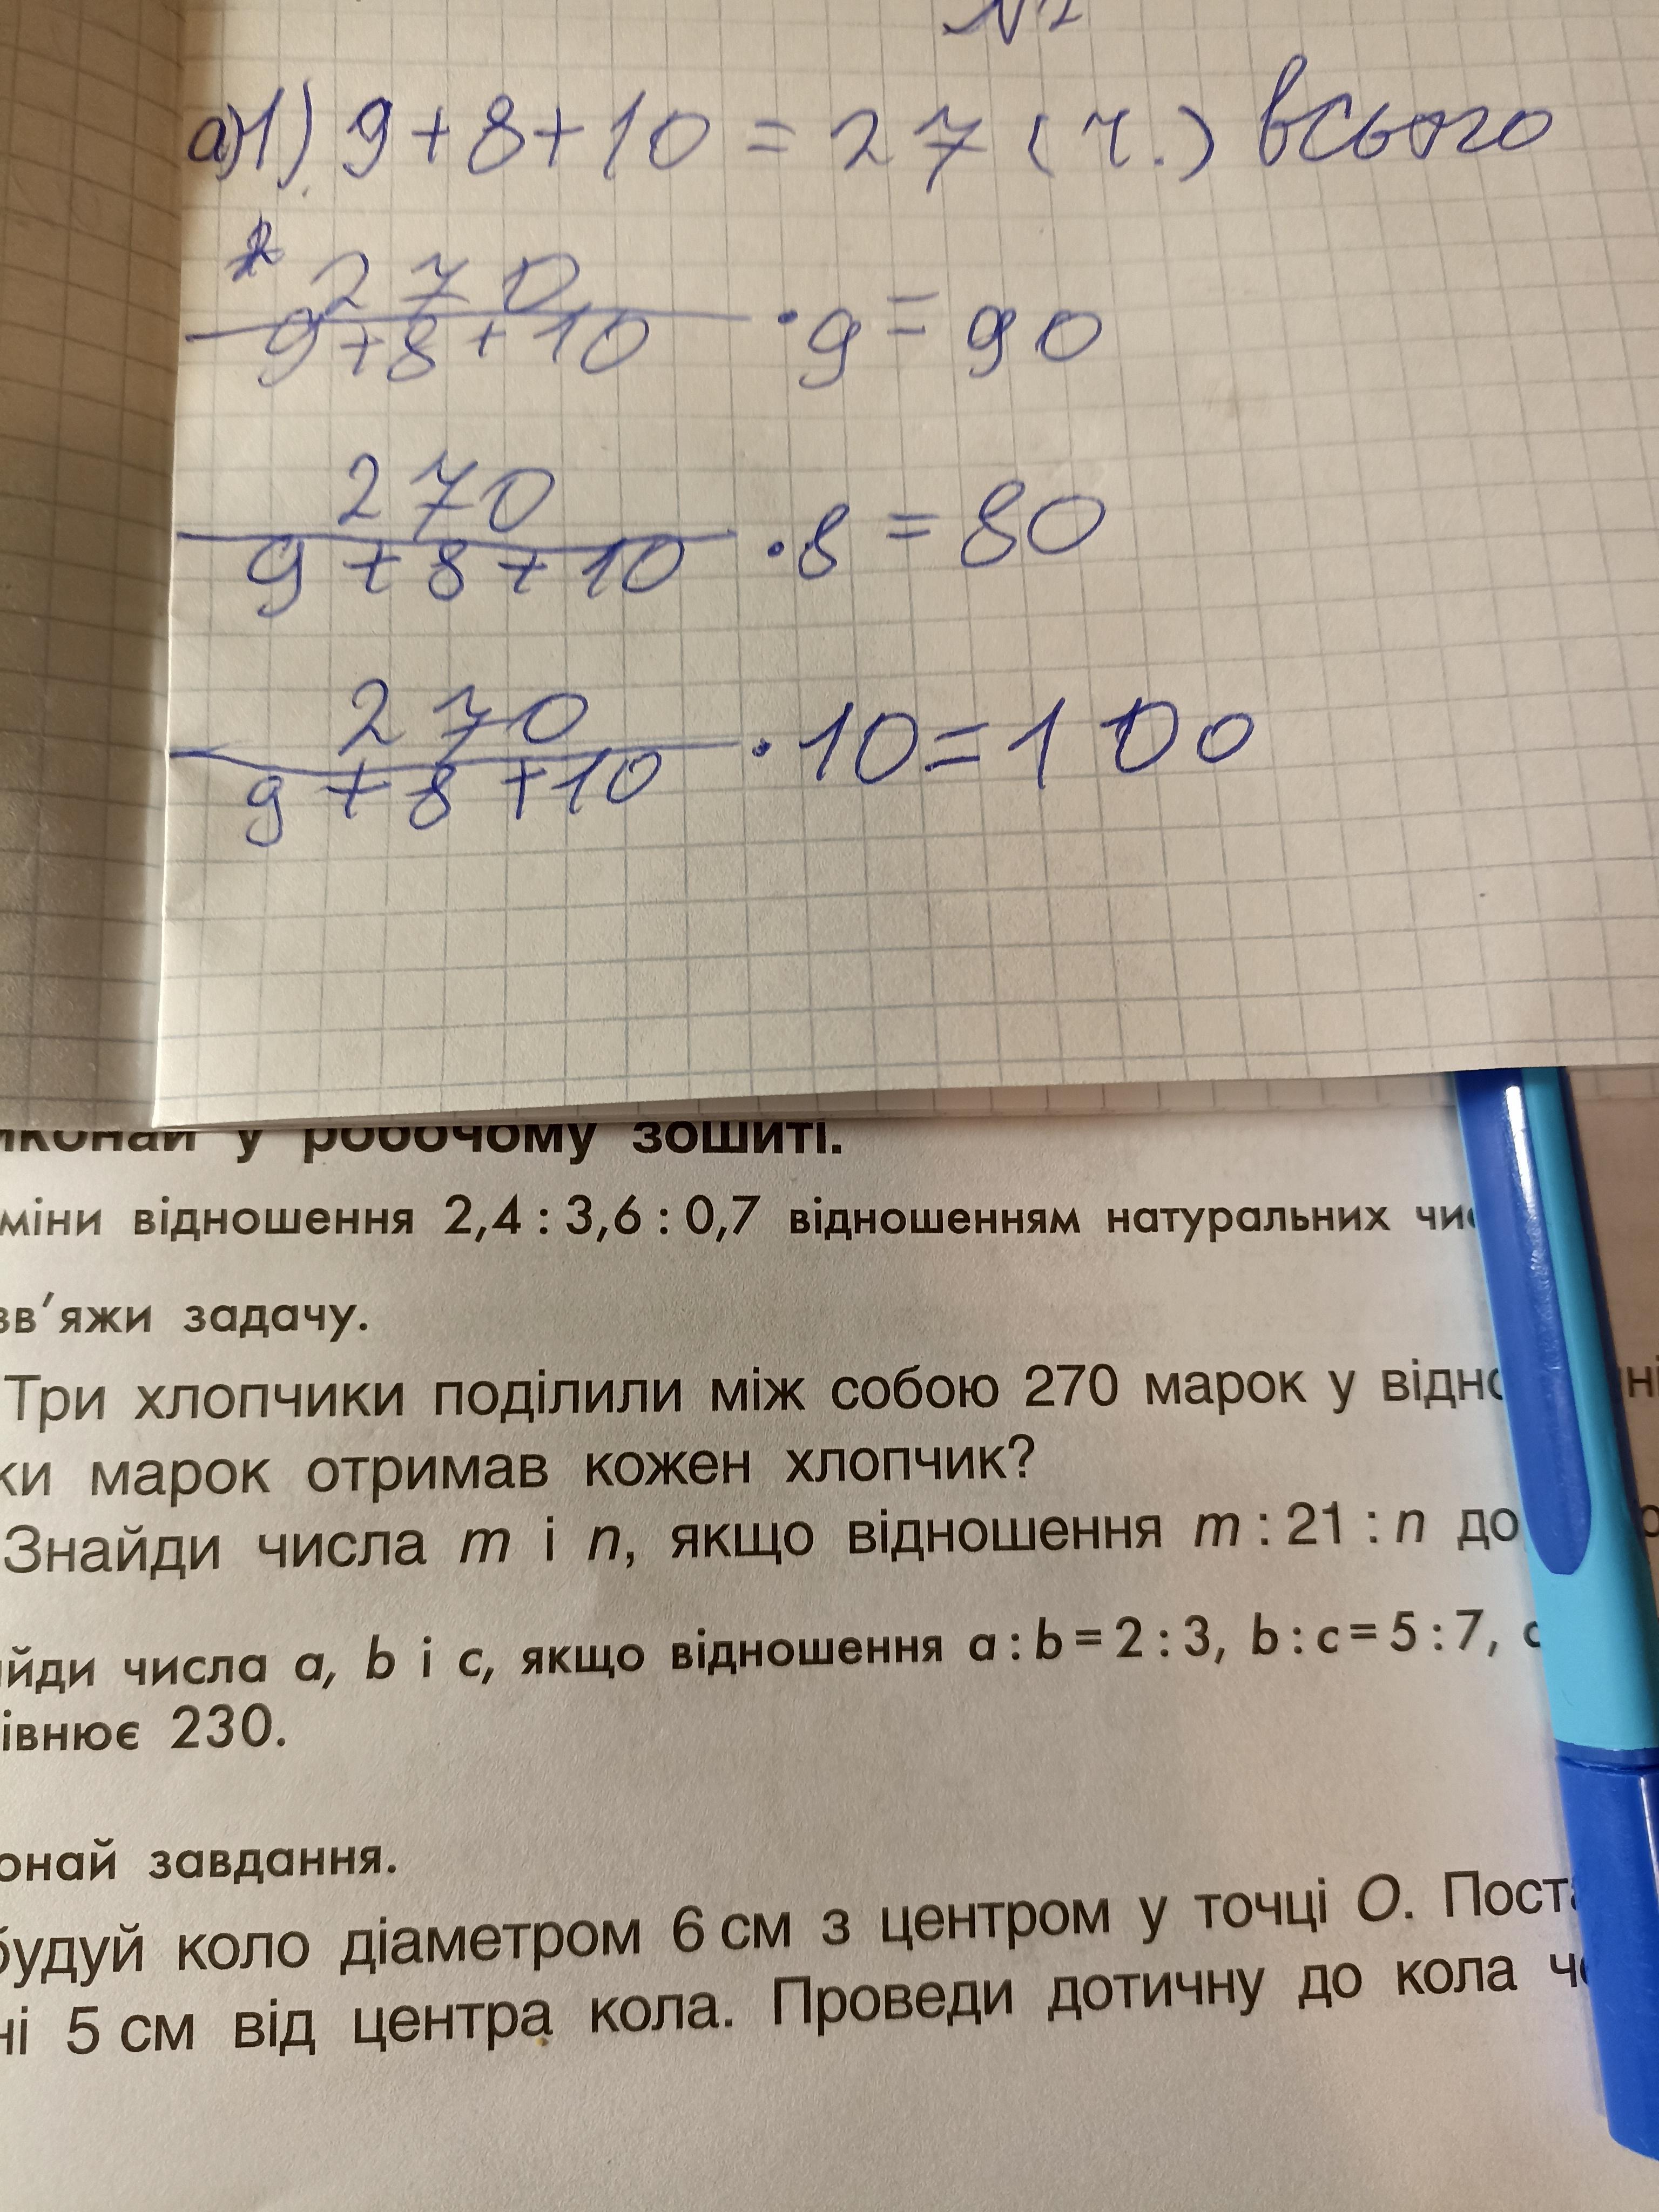 а) 1) 9+8+10 = 27 (ч.) всього
270
9+8+10 · 9 = 90
270
9+8+10 · 8 = 80
270
9+8+10 · 10 = 100
у робочому зошиті.
відношення 2,4 : 3,6 : 0,7 відношенням натуральних
задачу.
Три хлопчики поділили між собою 270 марок у
марок отримав кожен хлопчик?
Знайди числа m і n, якщо відношення m : 21 : n
числа a, b і c, якщо відношення a : b = 2 : 3, b : c = 5 : 7,
230.
завдання.
коло діаметром 6 см з центром у точці O.
5 см від центра кола. Проведи дотичну до кола